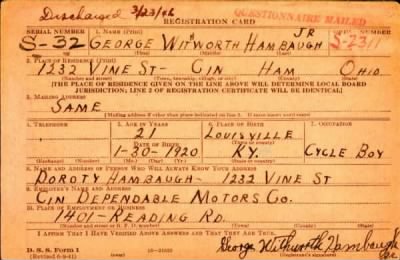 Discharged 3/23/46
REGISTRATION CARD
QUESTIONNAIRE MAILED
SERIAL NUMBER 1. NAME (Print) ORDER NUMBER
S-32 GEORGE WITWORTH HAMBAUGH JR S-2311
(First) (Middle) (Last)
2. PLACE OF RESIDENCE (Print)
1232 VINE ST- CIN HAM OHIO
(Number and street) (Town, township, village, or city) (County) (State)
[THE PLACE OF RESIDENCE GIVEN ON THE LINE ABOVE WILL DETERMINE LOCAL BOARD
JURISDICTION; LINE 2 OF REGISTRATION CERTIFICATE WILL BE IDENTICAL]
3. MAILING ADDRESS
SAME
[Mailing address if other than place indicated on line 2. If same insert word same]
4. TELEPHONE 5. AGE IN YEARS 6. PLACE OF BIRTH 7. OCCUPATION
21 LOUISVILLE
DATE OF BIRTH
1-30-1920 KY. CYCLE BOY
(Exchange) (Number) (Mo.) (Day) (Yr.) (State or country)
8. NAME AND ADDRESS OF PERSON WHO WILL ALWAYS KNOW YOUR ADDRESS
DOROTY HAMBAUGH- 1232 VINE ST
9. EMPLOYER'S NAME AND ADDRESS
CIN DEPENDABLE MOTORS CO.
10. PLACE OF EMPLOYMENT OR BUSINESS
1401-READING RD.
(Number and street or R. F. D. number) (Town) (County) (State)
I AFFIRM THAT I HAVE VERIFIED ABOVE ANSWERS AND THAT THEY ARE TRUE.
D. S. S. Form 1
George Witworth Hambaugh Jr.
(Registrant's signature)